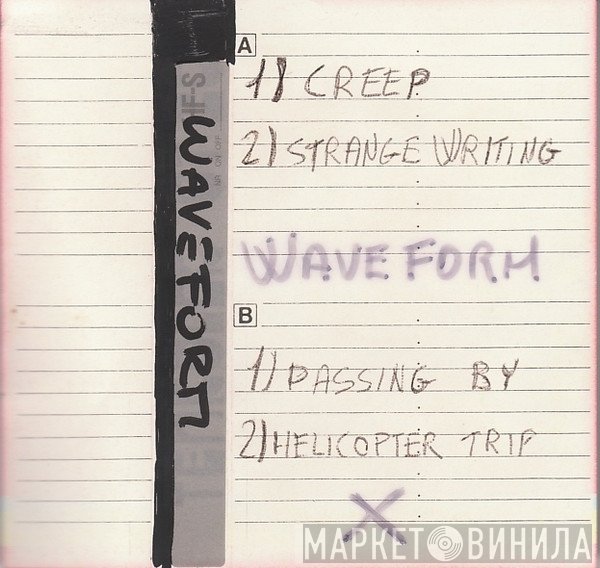 A
1) CREEP
2) STRANGE WRITING
WAVEFORM
B
1) PASSING BY
2) HELICOPTER TRIP
X
HF-S
NR ON OFF
WAVEFORM
МАРКЕТ ВИНИЛА